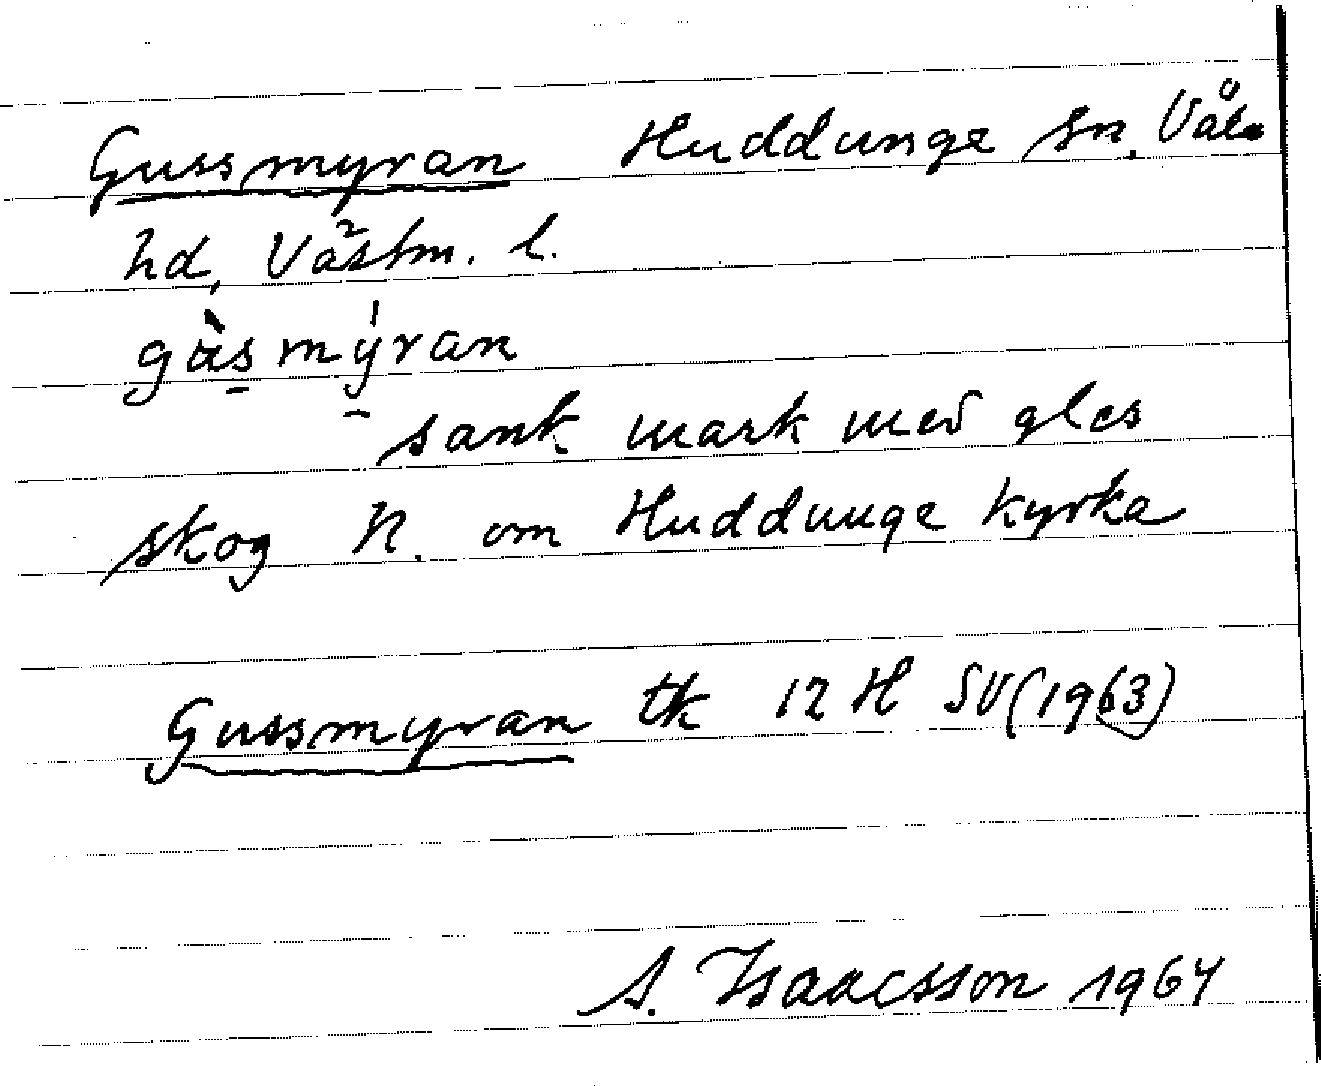 Gussmyran Huddunge sn, Våla
hd, Västm. l.
gùs̠mý̠ran
sank mark med gles
skog N. om Huddunge kyrka
Gussmyran tk 12 H SV (1963)
S. Isaacsson 1964